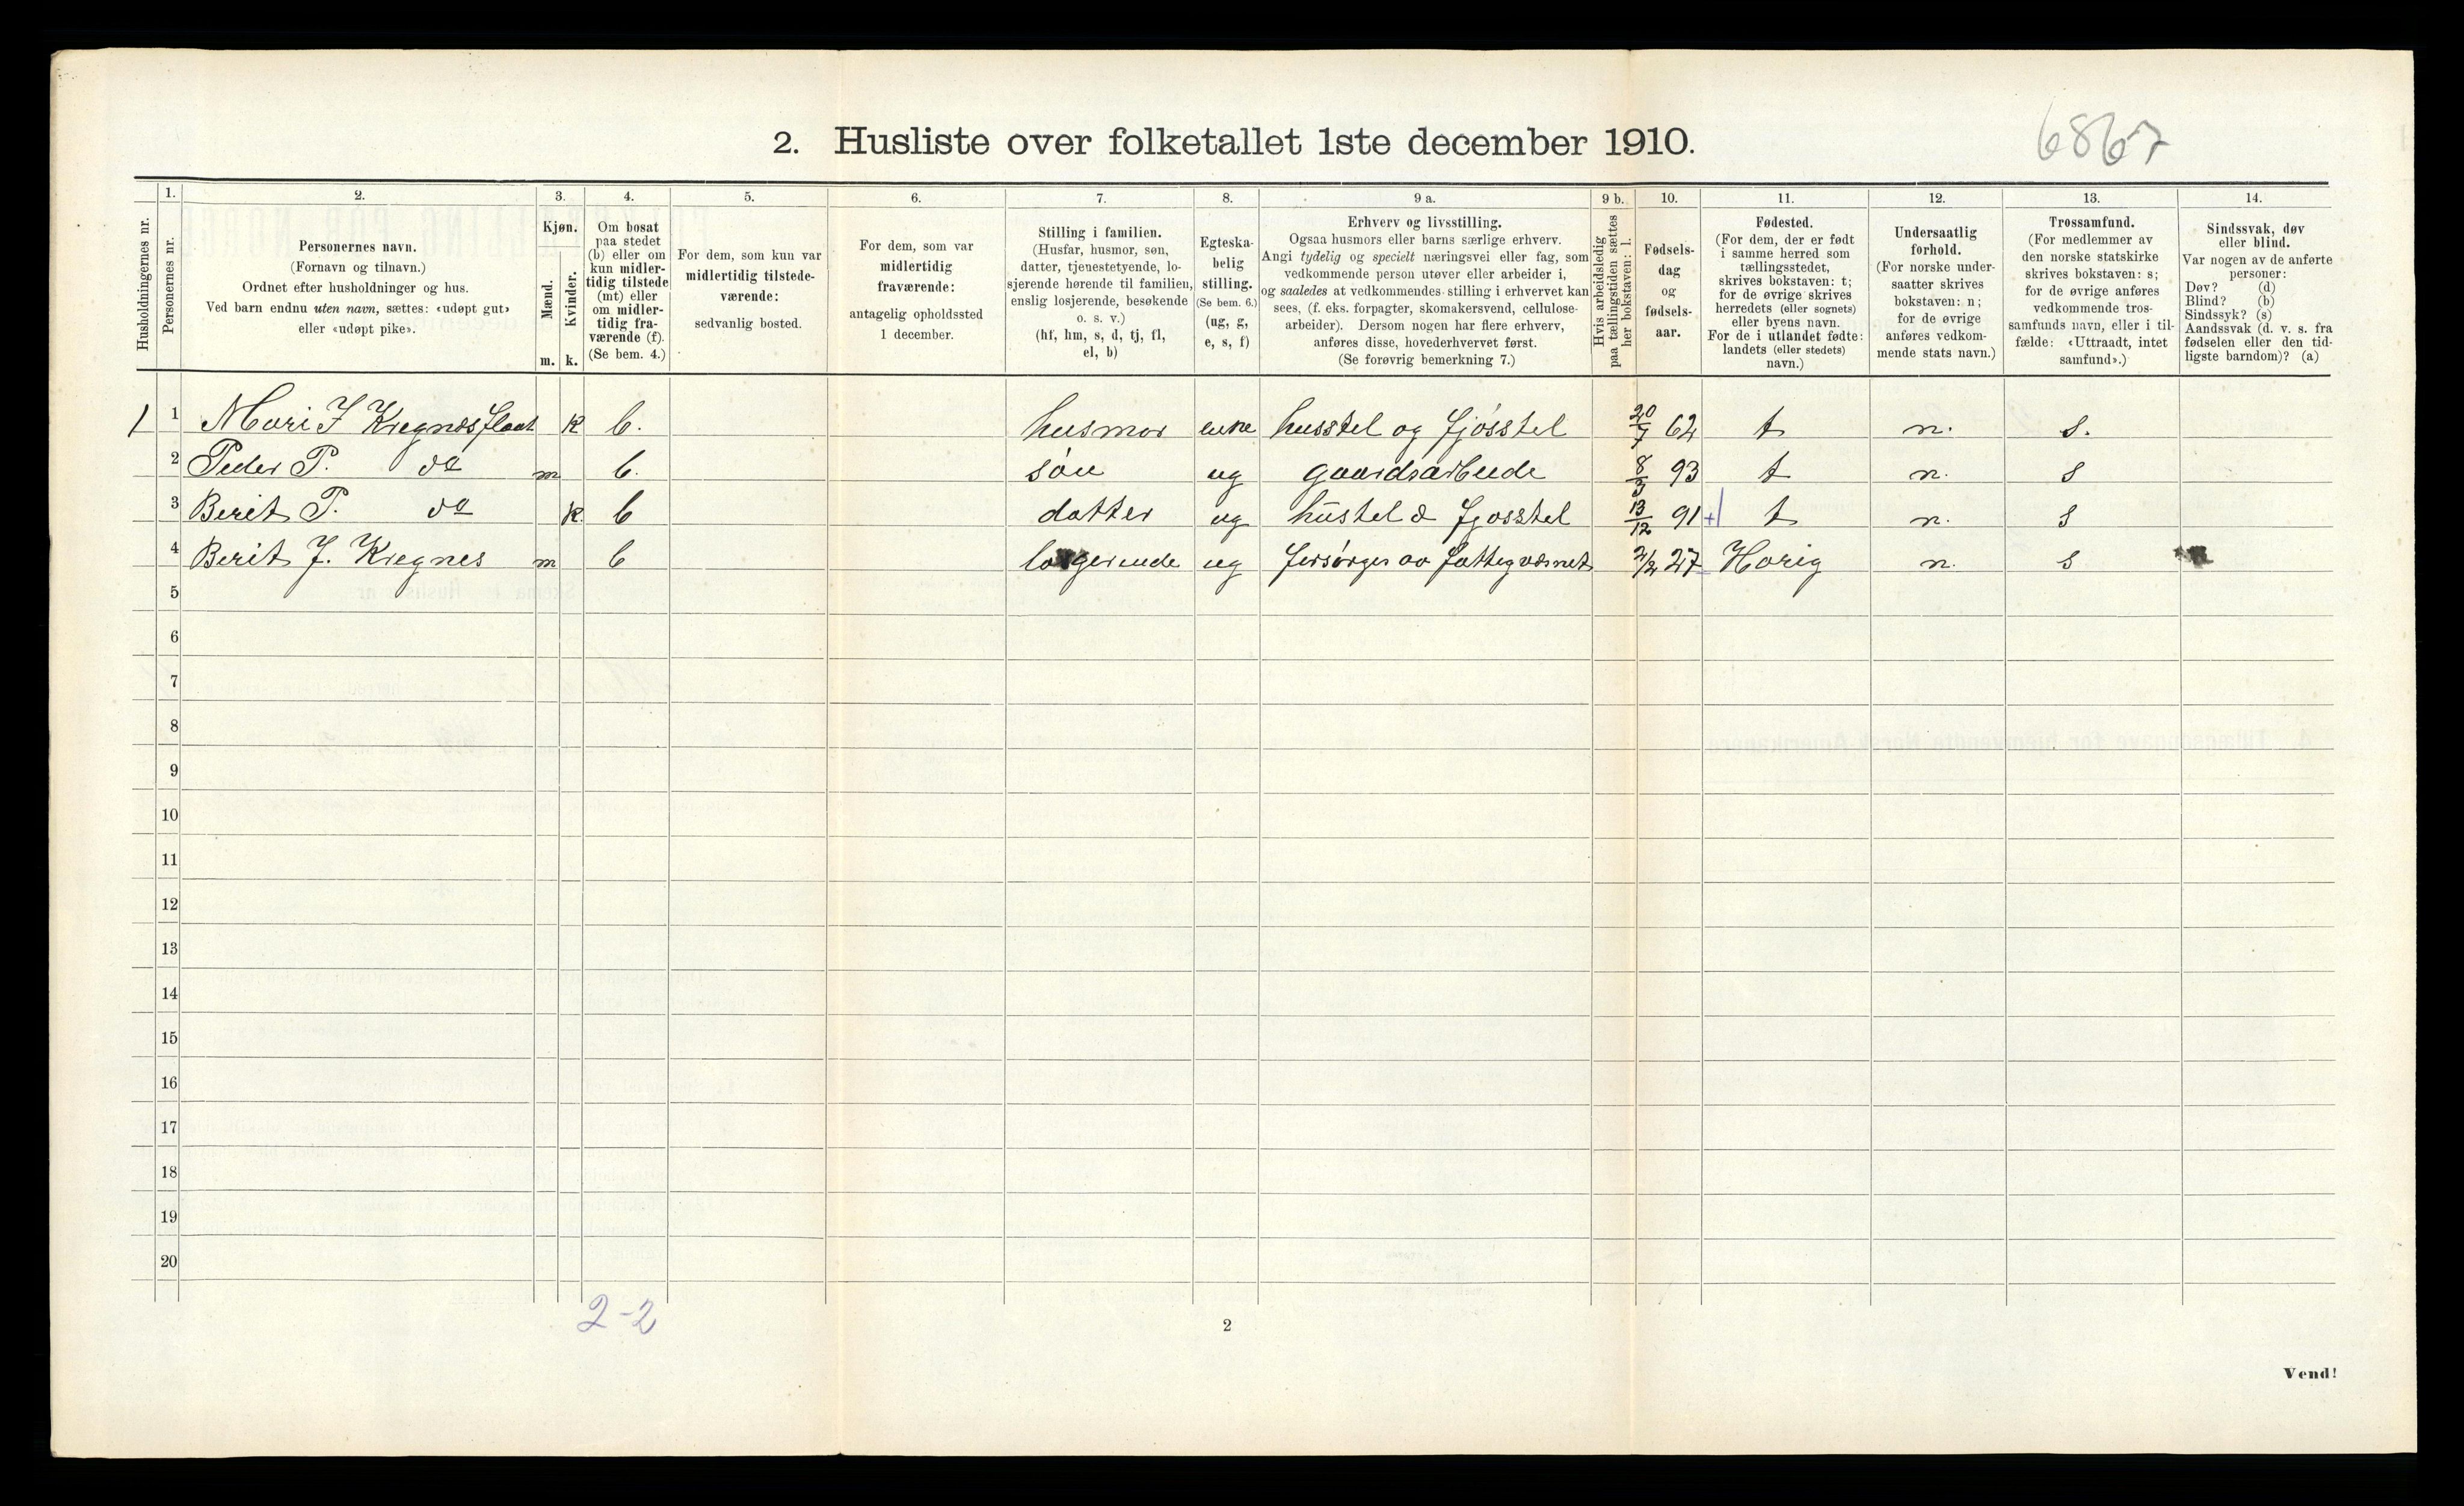 6867
2. Husliste over folketallet 1ste december 1910.
Husholdningernes nr.
1.
Personernes nr.
2.
Personernes navn.
(Fornavn og tilnavn.)
Ordnet efter husholdninger og hus.
Ved barn endnu uten navn, sættes: «udøpt gut»
eller «udøpt pike».
3.
Kjøn.
Mænd.
Kvinder.
m. k.
4.
Om bosat
paa stedet
(b) eller om
kun midler-
tidig tilstede
(mt) eller
om midler-
tidig fra-
værende (f).
(Se bem. 4.)
5.
For dem, som kun var
midlertidig tilstede-
værende:
sedvanlig bosted.
6.
For dem, som var
midlertidig
fraværende:
antagelig opholdssted
1 december.
7.
Stilling i familien.
(Husfar, husmor, søn,
datter, tjenestetyende, lo-
sjerende hørende til familien,
enslig losjerende, besøkende
o. s. v.)
(hf, hm, s, d, tj, fl,
el, b)
8.
Egteska-
belig
stilling.
(Se bem. 6.)
(ug, g,
e, s, f)
9 a.
Erhverv og livsstilling.
Ogsaa husmors eller barns særlige erhverv.
Angi tydelig og specielt næringsvei eller fag, som
vedkommende person utøver eller arbeider i,
og saaledes at vedkommendes stilling i erhvervet kan
sees, (f. eks. forpagter, skomakersvend, cellulose-
arbeider). Dersom nogen har flere erhverv,
anføres disse, hovederhvervet først.
(Se forøvrig bemerkning 7.)
9 b.
Hvis arbeidsledig
paa tællingstiden sættes
her bokstaven: l.
10.
Fødsels-
dag
og
fødsels-
aar.
11.
Fødested.
(For dem, der er født
i samme herred som
tællingsstedet,
skrives bokstaven: t;
for de øvrige skrives
herredets (eller sognets)
eller byens navn.
For de i utlandet fødte:
landets (eller stedets)
navn.)
12.
Undersaatlig
forhold.
(For norske under-
saatter skrives
bokstaven: n;
for de øvrige
anføres vedkom-
mende stats navn.)
13.
Trossamfund.
(For medlemmer av
den norske statskirke
skrives bokstaven: s;
for de øvrige anføres
vedkommende tros-
samfunds navn, eller i til-
fælde: «Uttraadt, intet
samfund».)
14.
Sindssvak, døv
eller blind.
Var nogen av de anførte
personer:
Døv? (d)
Blind? (b)
Sindssyk? (s)
Aandssvak (d. v. s. fra
fødselen eller den tid-
ligste barndom)? (a)
1 1 Mari J Kregnesflaat k b. husmor enke husstel og fjøsstel 20/7 62 t n. s.
2 Peder P. do m b. søn ug gaardsarbeide 8/3 93 t n. s
3 Berit P. do k. b datter ug hustel & fjosstel 13/12 91 +1 t n. s
4 Berit J. Kregnes m b ug forsørges av fattigvæsnet 2/2 27 Horig n. s
5
6
7
8
9
10
11
12
13
14
15
16
17
18
19
20
2-2
2
Vend!